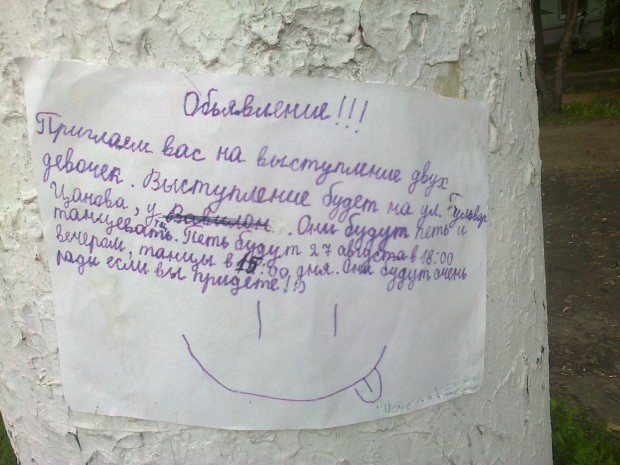 Обьявление!!!
Приглаем вас на выступление двух
девочек. Выступление будет на ул. Бульвар
Цанова, у Вавилон. Они будут петь и
танцевать. Петь будут 27 августа в 18:00
вечером, танцы в 15:00 дня. Они будут очень
ради если вы придете! :)